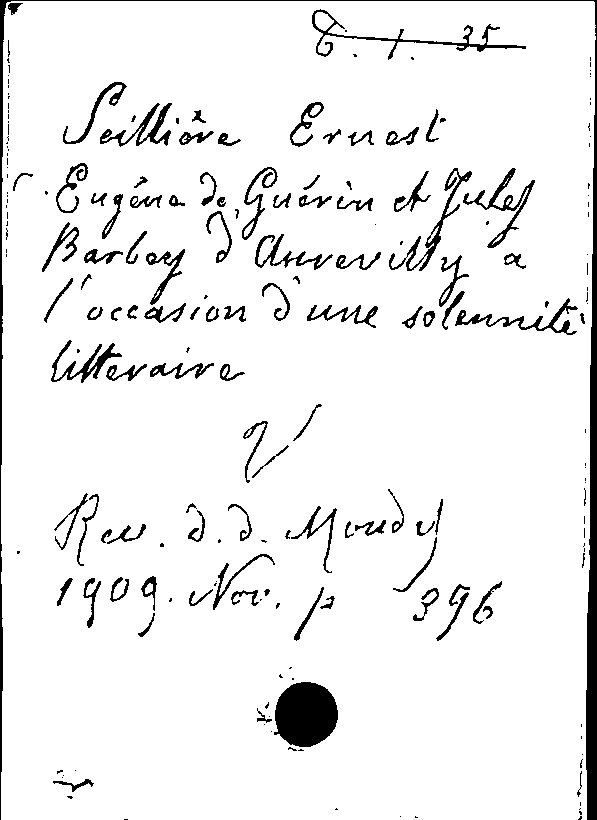 6. 1. 35
Seillière Ernest
Eugénie de Guérin et Jules
Barbey d'Aurevilly a
l'occasion d'une solennité
litteraire
Rev. d. d. Mondes
1909. Nov. p 396